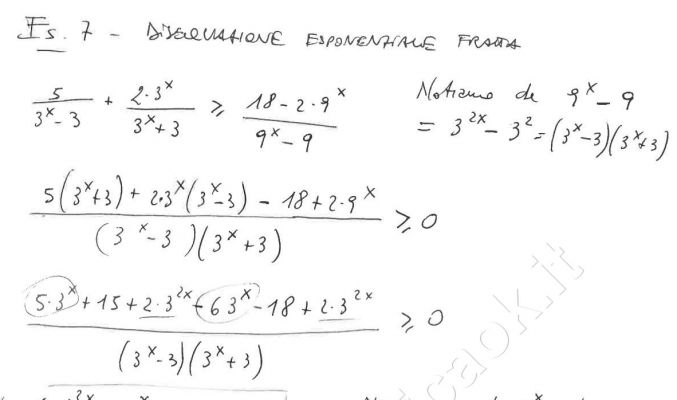 Es. 7 - DISEQUAZIONE ESPONENZIALE FRATTA
5/(3^x - 3) + 2·3^x/(3^x + 3) ≥ (18 - 2·9^x)/(9^x - 9)
Notiamo che 9^x - 9
= 3^{2x} - 3^2 = (3^x - 3)(3^x + 3)
(5(3^x + 3) + 2·3^x(3^x - 3) - 18 + 2·9^x)/((3^x - 3)(3^x + 3)) ≥ 0
(5·3^x + 15 + 2·3^{2x} - 6 3^x - 18 + 2·3^{2x})/((3^x - 3)(3^x + 3)) ≥ 0
caok.it